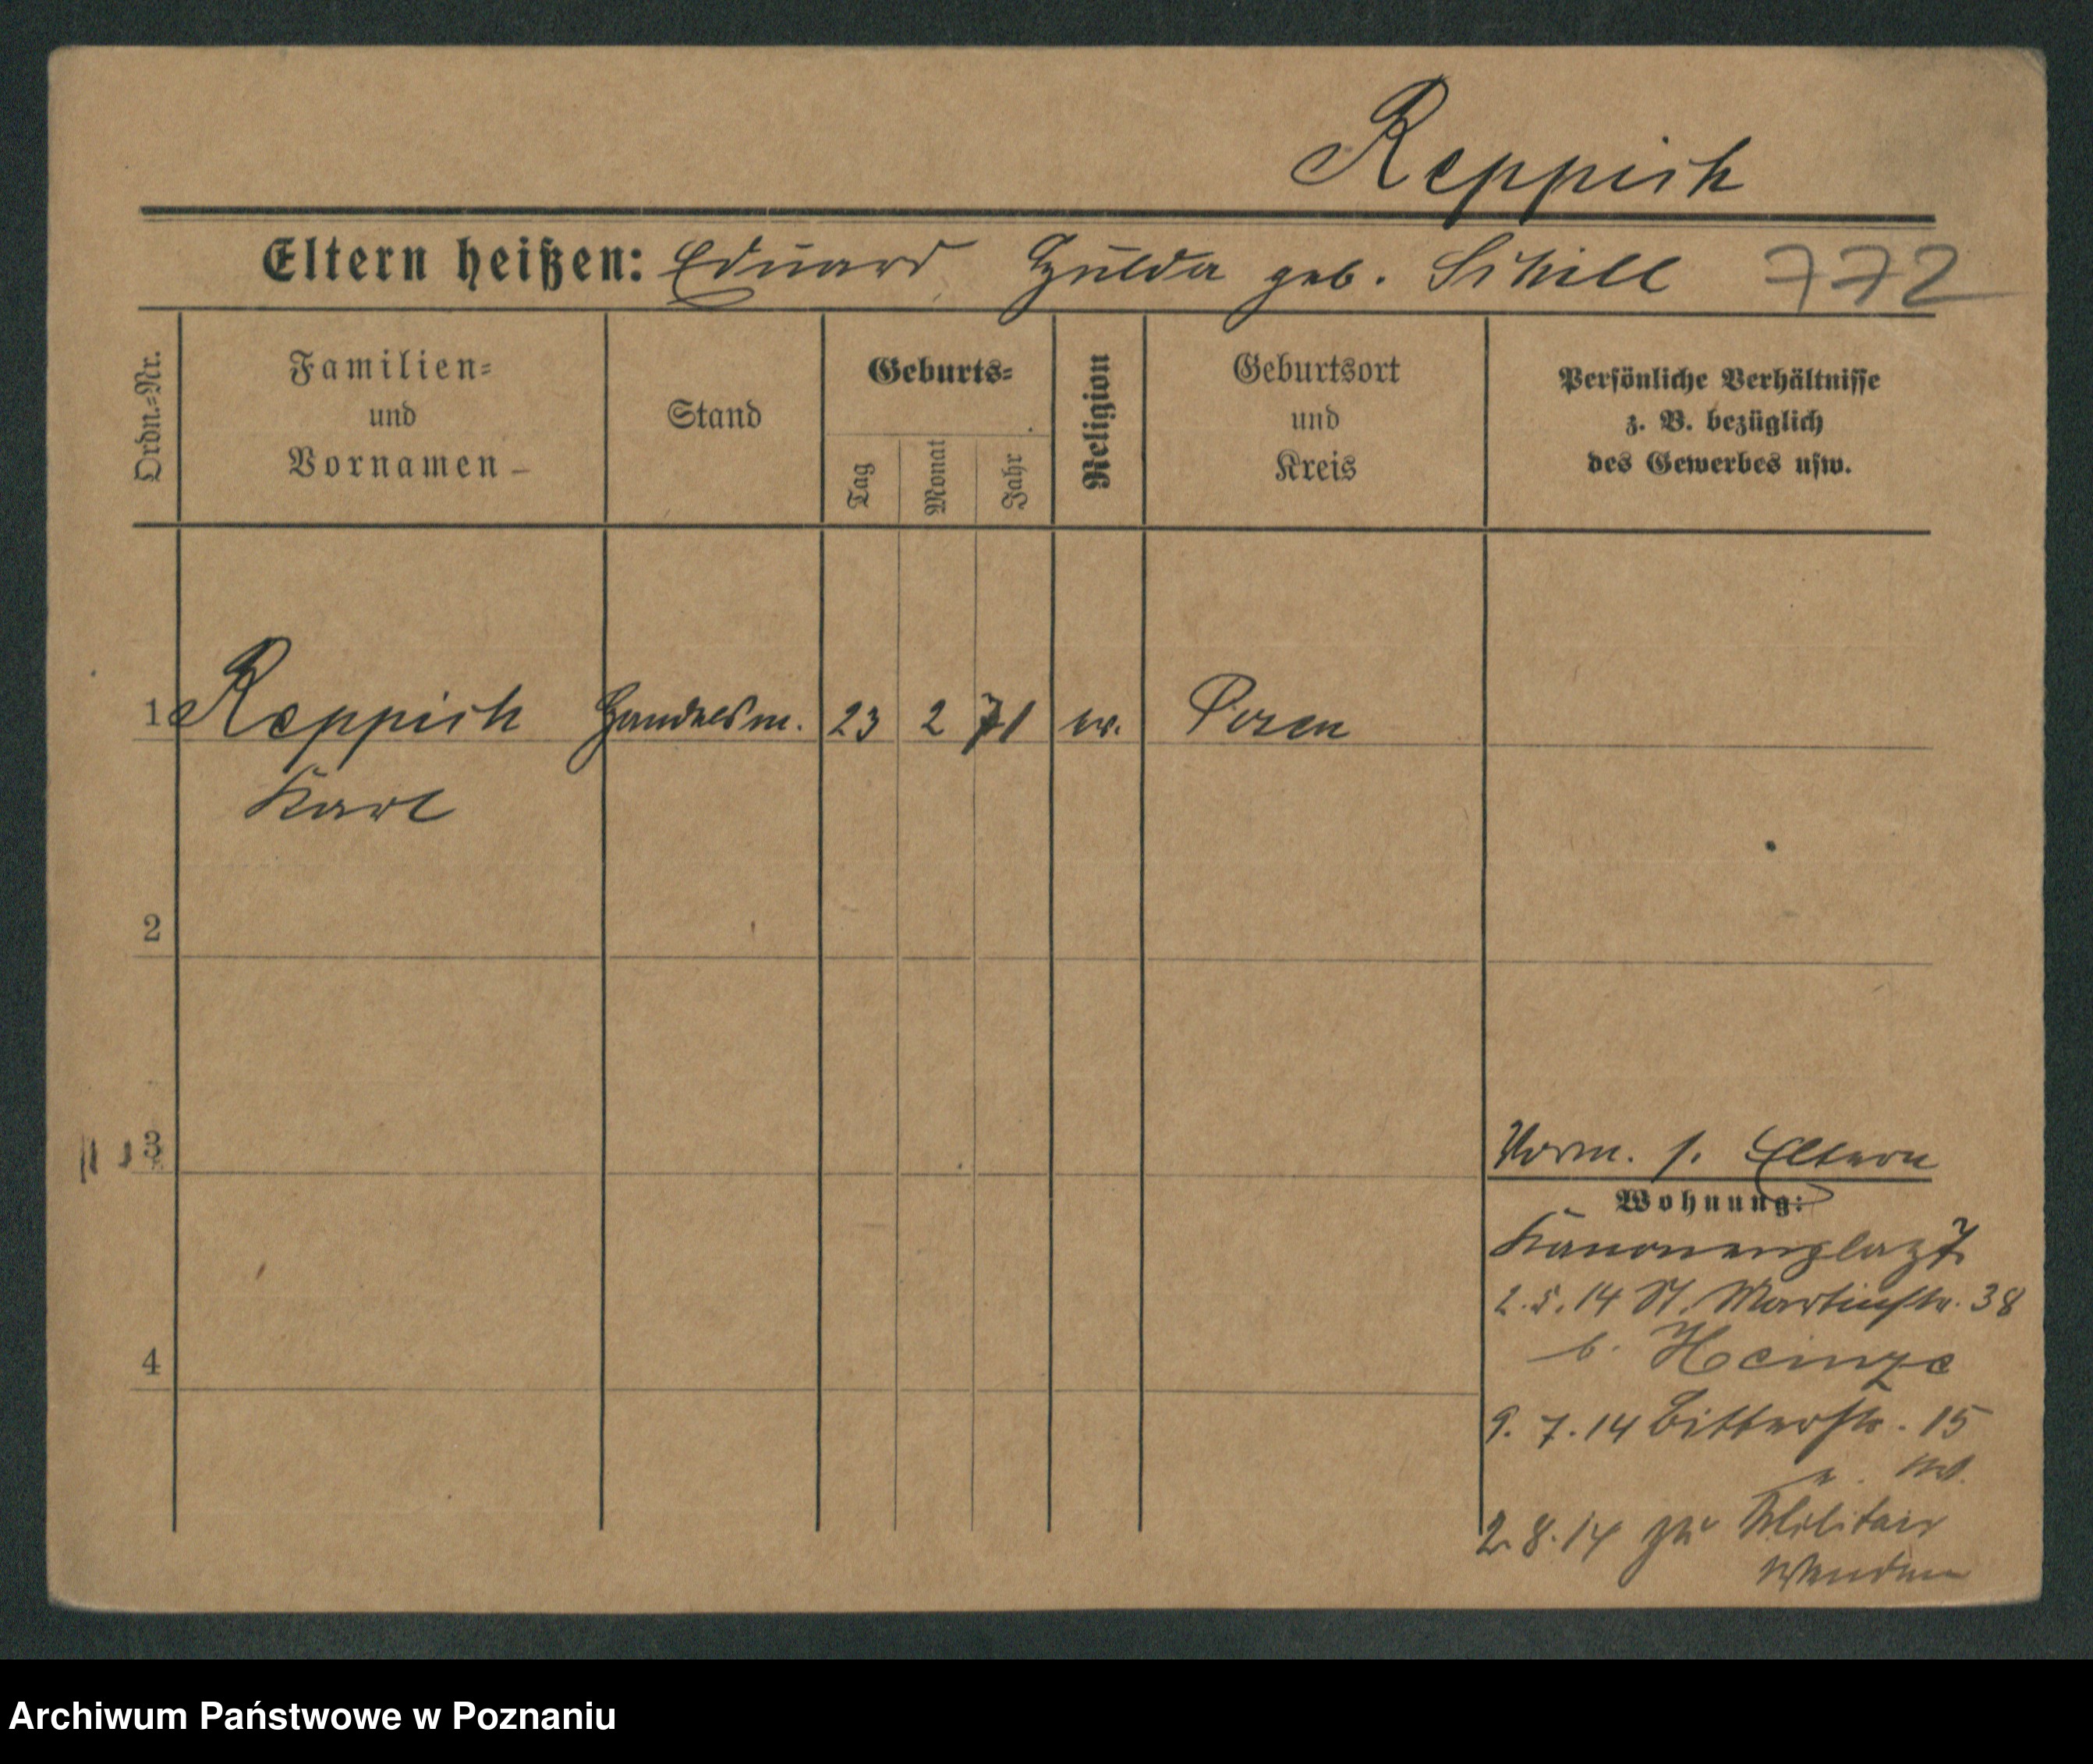 Reppich
Eltern heißen: Eduard Hulda geb. Schill 772
Ordn.-Nr.
Familien-
und
Vornamen
Stand
Geburts-
Tag
Monat
Jahr
Religion
Geburtsort
und
Kreis
Persönliche Verhältnisse
z. B. bezüglich
des Gewerbes usw.
1 Reppich Handelsm. 23 2 71 ev. Posen
Karl
2
3
Vorm. s. Eltern
Wohnung:
Kanonenplatz 7
2.5.14 St. Martinstr. 38
b. Heinze
9.7.14 Bitterstr. 15
4
2.8.14 zu Militair
Wenden
Archiwum Państwowe w Poznaniu